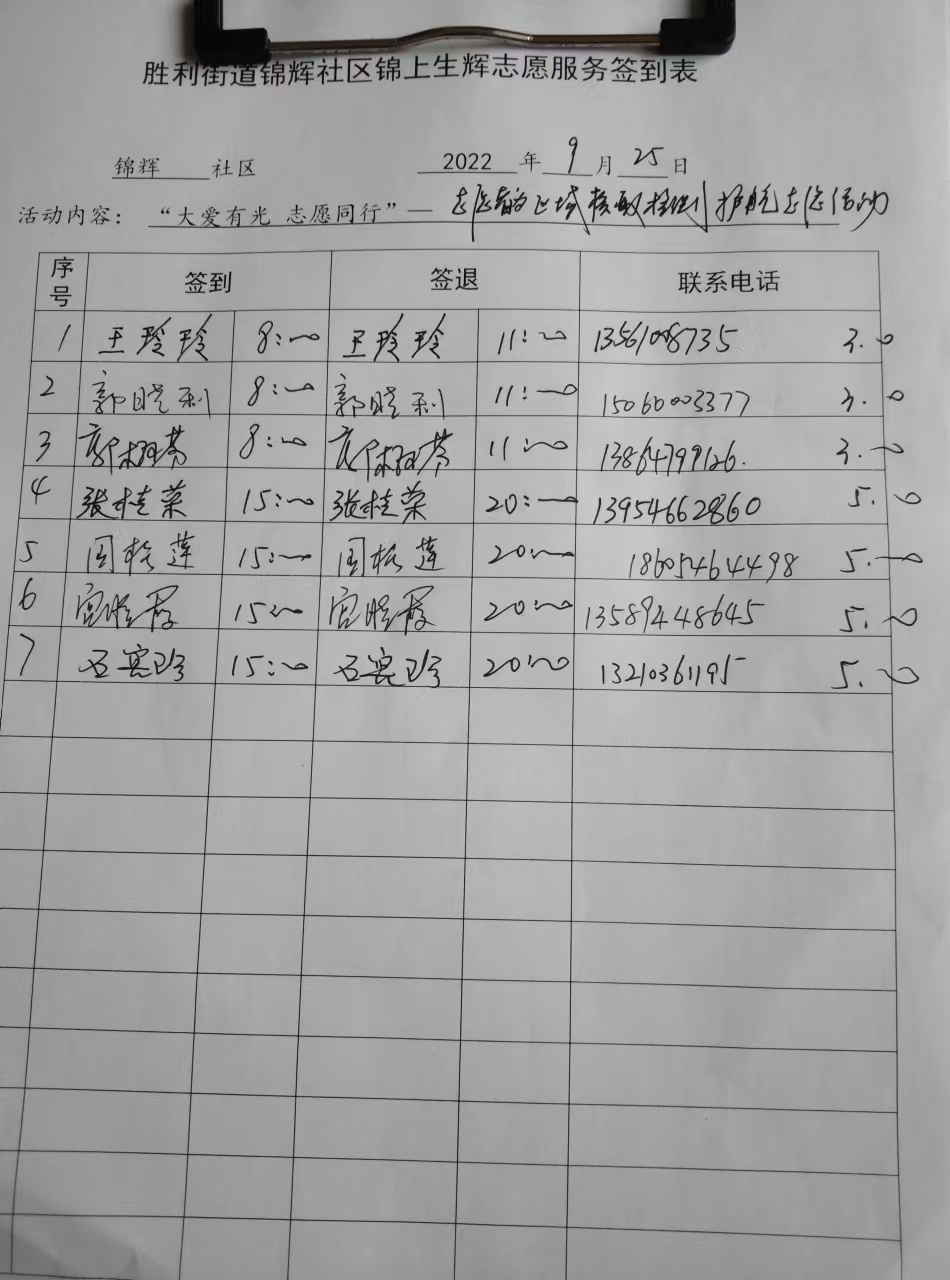 胜利街道锦辉社区锦上生辉志愿服务签到表
锦辉 社区 2022 年 9 月 25 日
活动内容: “大爱有光 志愿同行”— 区域核酸检测护航志愿活动
序号 签到 签退 联系电话
1 王玲玲 8:00 王玲玲 11:00 13561008735 3.0
2 郭晓利 8:00 郭晓利 11:00 15060003377 3.0
3 8:00 11:00 13864799126. 3.0
4 张桂荣 15:00 张桂荣 20:00 13954662860 5.0
5 周松莲 15:00 周松莲 20:00 18605464498 5.0
6 宫晓霞 15:00 宫晓霞 20:00 13589448645 5.0
7 石宾珍 15:00 石宾珍 20:00 13210361195 5.0